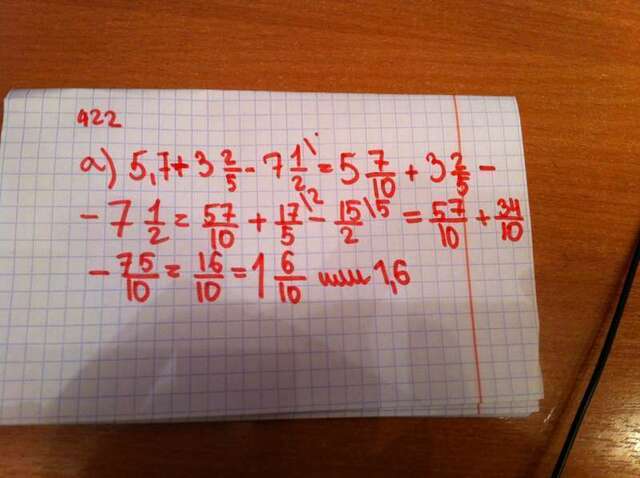 422
а) 5,7 + 3 2/5 - 7 1/2 \ = 5 7/10 + 3 2/5 -
- 7 1/2 = 57/10 + 17/5 \2 - 15/2 \5 = 57/10 + 34/10
- 75/10 = 16/10 = 1 6/10 или 1,6